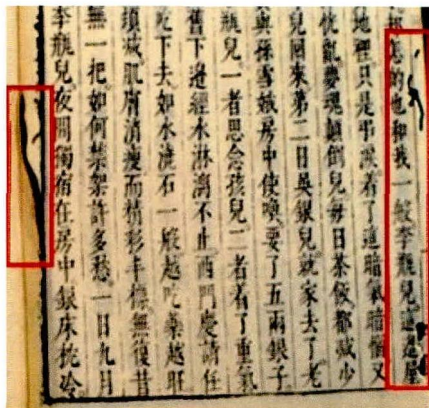 怎的也和我一般李瓶兒這邊屋
地裡只是弔淚着了這暗氣暗惱又
恍亂夢魂顛倒兒每日茶飯都減少
兒回來第二日吳銀兒就家去了老
與孫雪娥房中使喚要了五兩銀子
瓶兒一者思念孩兒二者着了重氣
舊下邊經水淋漓不止西門慶請任
吃下去如水澆石一般越吃藥越旺
頓減肌膚消瘦而精彩丰標無復昔
無一把如何禁架許多愁一日九月
李瓶兒夜間獨宿在房中銀床枕冷